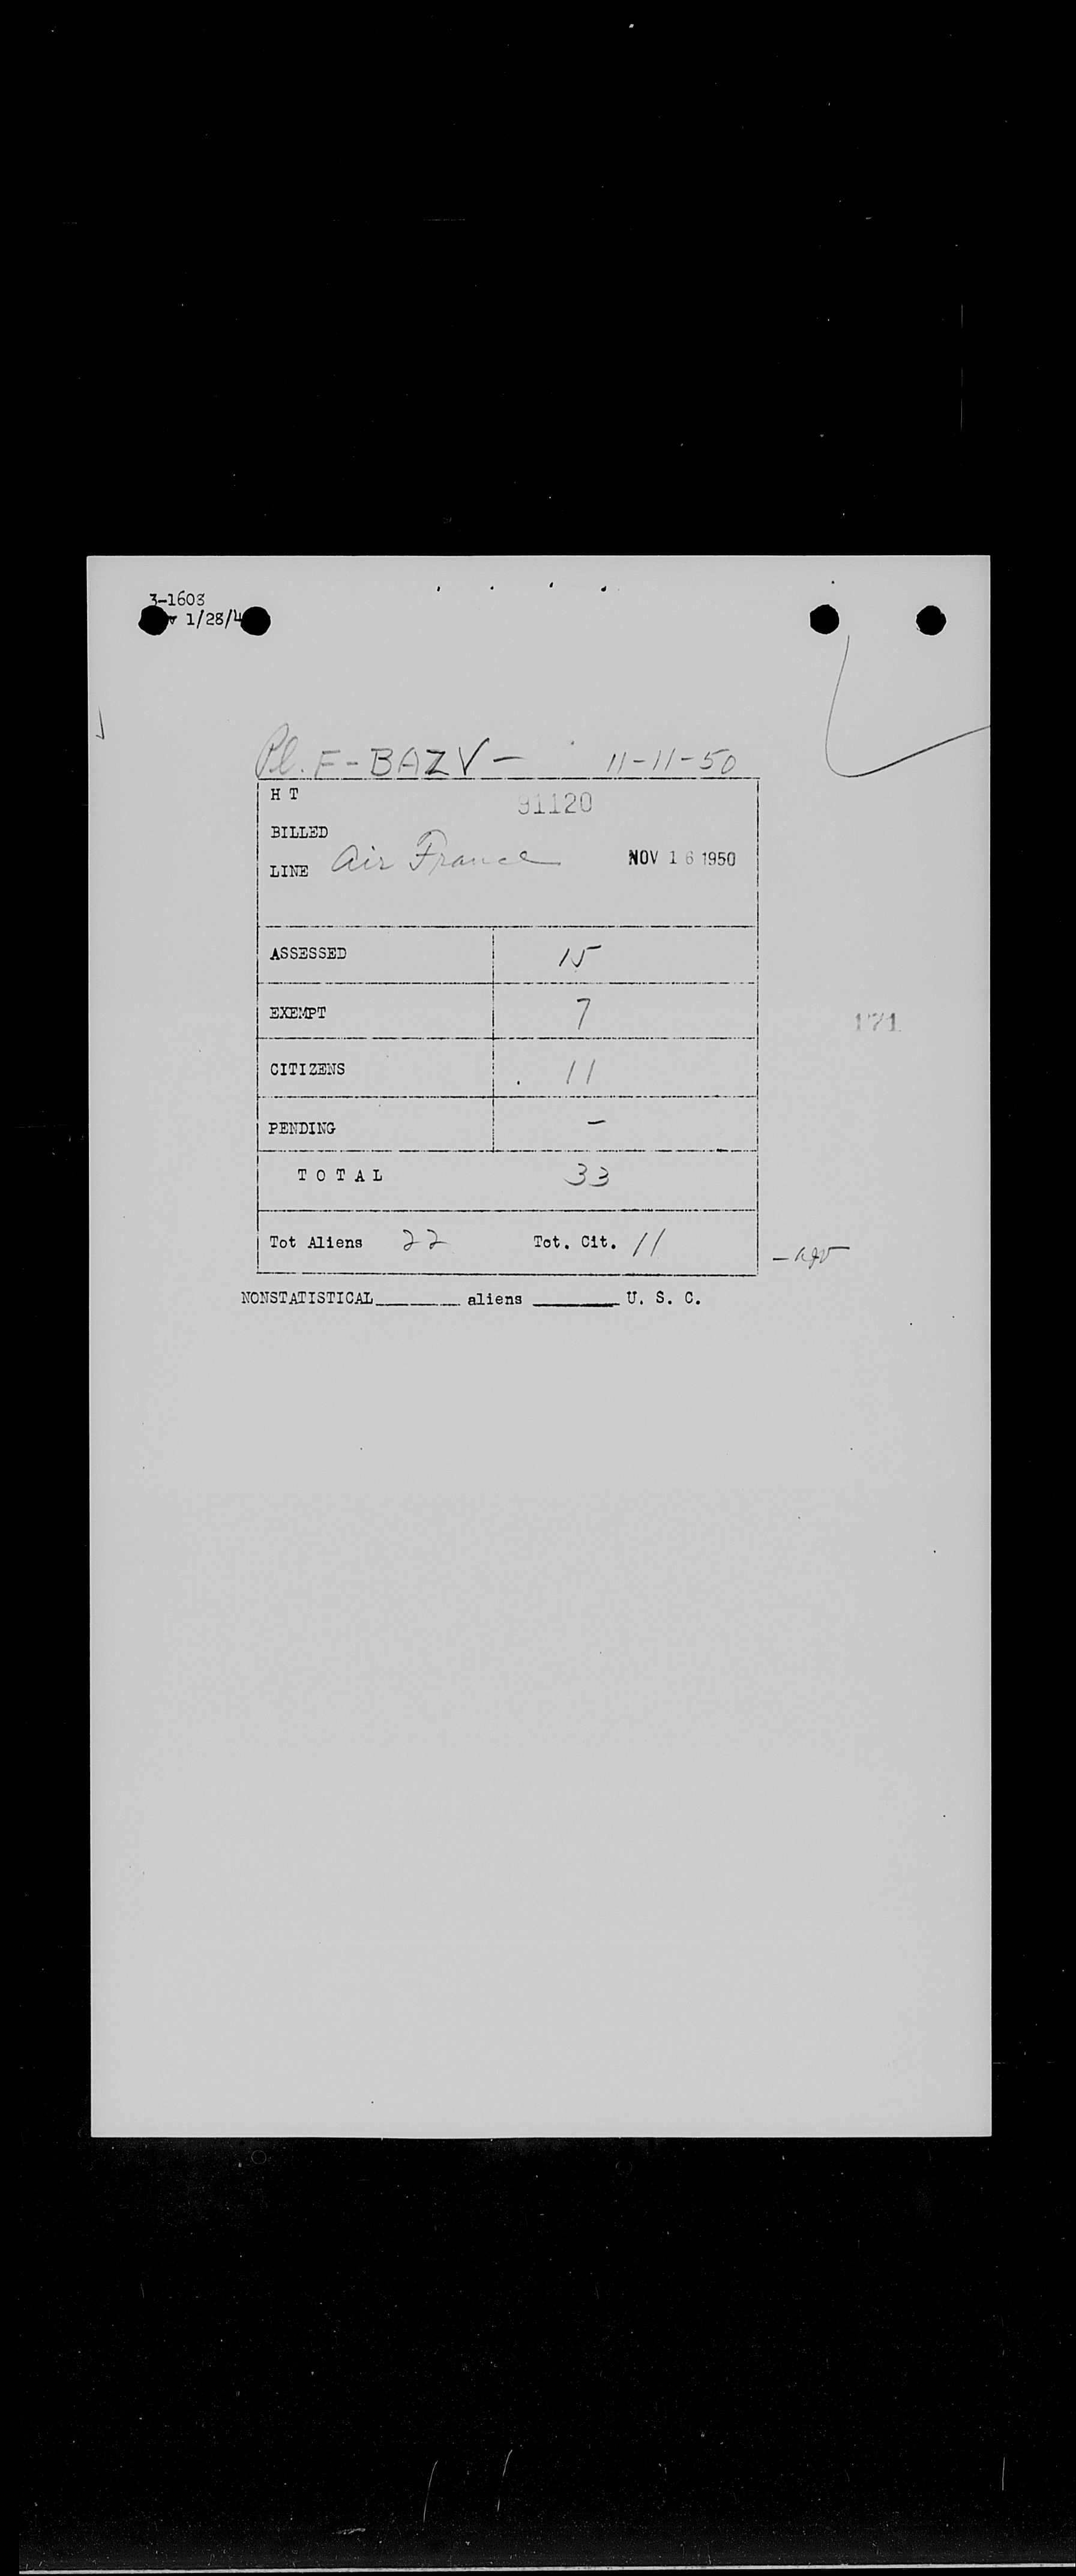 3-1603
1/28/4
Pl. F-BAZV- 11-11-50
H T
91120
BILLED
LINE Air France NOV 16 1950
ASSESSED 15
EXEMPT 7
171
CITIZENS 11
PENDING -
TOTAL 33
Tot Aliens 22 Tot. Cit. 11
NONSTATISTICAL________ aliens ________ U. S. C.